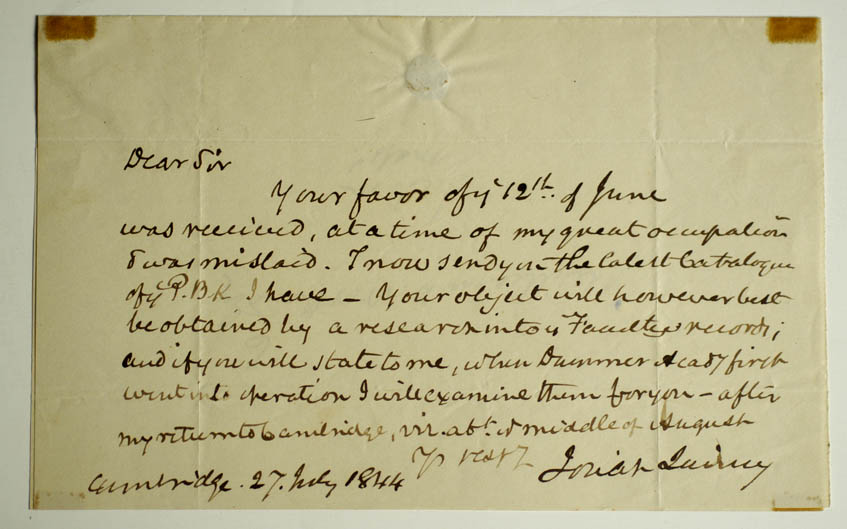 Dear Sir
Your favor of yͤ 12th. of June
was received, at a time of my great occupation
& was mislaid. I now send you the latest Catalogue
of yͤ P. B K I have – Your object will however best
be obtained by a research into yͤ Faculty records;
and if you will state to me, when Dummer Acady first
went into operation I will examine them for you – after
my return to Cambridge, viz. abt. yͤ middle of August
Yr resp
Josiah Quincy
Cambridge. 27. July 1844